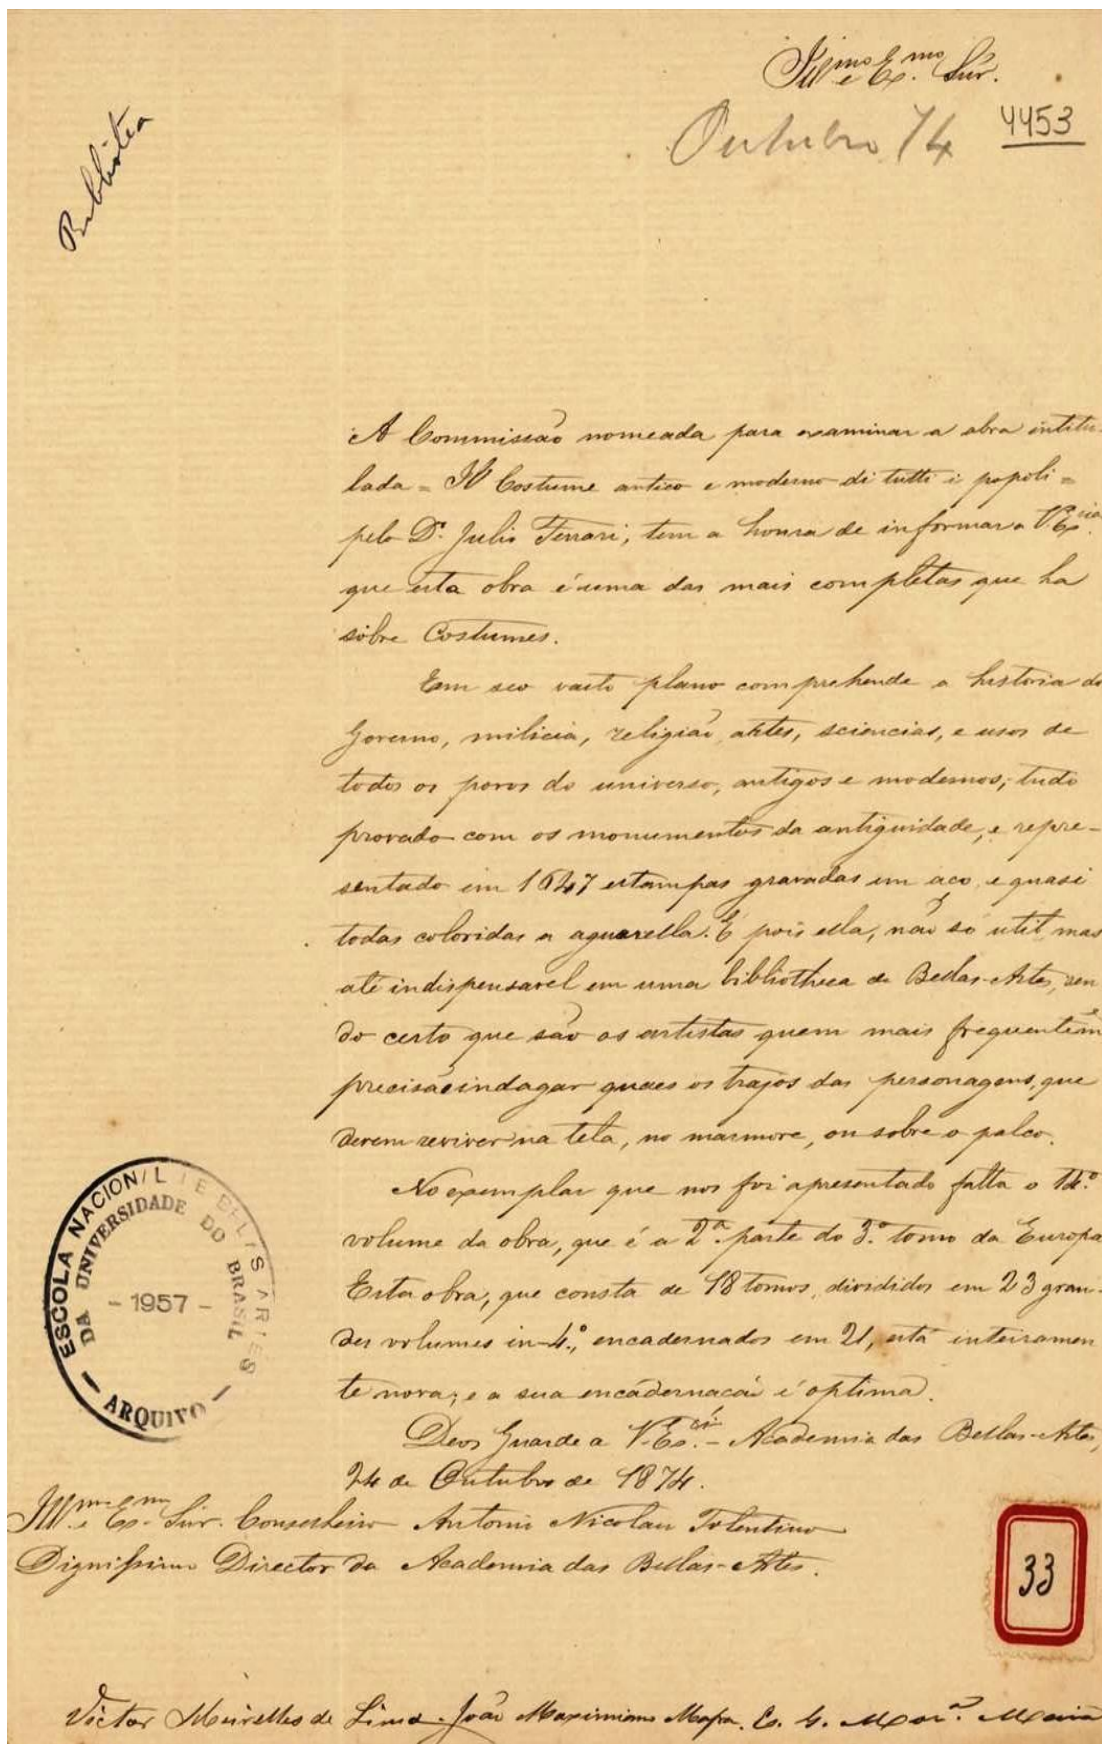 Ill.mo e Ex.mo Snr.
Outubro 74
4453
Bibliotea
A Commissão nomeada para examinar a obra intitu-
lada = Il Costume antico e moderno di tutti i popoli =
pelo Dr. Julio Ferrari, tem a honra de informar a V. Ex.cia
que esta obra é uma das mais completas que ha
sobre Costumes.
Em seo vasto plano comprehende a historia do
Governo, milicia, religião, artes, sciencias, e usos de
todos os povos do universo, antigos e modernos; tudo
provado com os monumentos da antiguidade, e repre-
sentado em estampas gravadas em aço, e quasi
todas coloridas a aguarella. É pois ella, não só util mas
até indispensavel em uma bibliotheca de Bellas-Artes, sen
do certo que são os artistas quem mais frequentem
precisão indagar quaes os trajos das personagens, que
devem reviver na tela, no marmore, ou sobre o palco.
No exemplar que nos foi apresentado falta o 14.º
volume da obra, que é a 2.ª parte do 3.º tomo da Europa
Esta obra, que consta de 18 tomos, divididos em 23 gran-
des volumes in-4.º, encadernados em 21, está inteiramen
te nova; e a sua encadernação é optima.
Deos Guarde a V. Ex.cia - Academia das Bellas-Artes,
24 de Outubro de 1874.
Ill.mo e Ex.mo Snr. Conselheiro Antonio Nicolau Tolentino
Dignissimo Director da Academia das Bellas-Artes.
ESCOLA NACIONAL DE BELAS ARTES
DA UNIVERSIDADE DO BRASIL
- 1957 -
ARQUIVO
33
Victor Meirelles de Lima. João Maximiano Mafra.